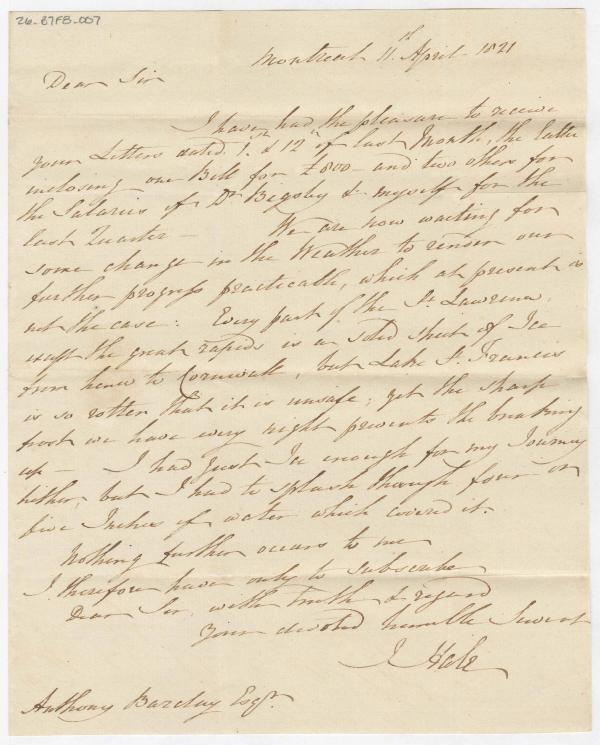 26-87FB-007
Montreal 11th April 1821
Dear Sir
I have had the pleasure to receive
your Letters dated 1st & 12th of last Month, the latter
inclosing one Bill for £800 - and two others for
the Salaries of Dr Bigsby & myself for the
last Quarter - We are now waiting for
some change in the Weather to render our
further progress practicable, which at present is
not the case: Every part of the St Lawrence,
except the great rapids is a solid sheet of Ice
from hence to Cornwall, but Lake St Francis
is so rotten that it is unsafe; yet the sharp
frost we have every night prevents the breaking
up - I had just Ice enough for my Journey
hither, but I had to splash through four or
five Inches of water which covered it.
Nothing further occurs to me
I therefore have only to subscribe
Dear Sir, with truth & regard
Your devoted humble Servant
J Hale
Anthony Barclay Esqr.